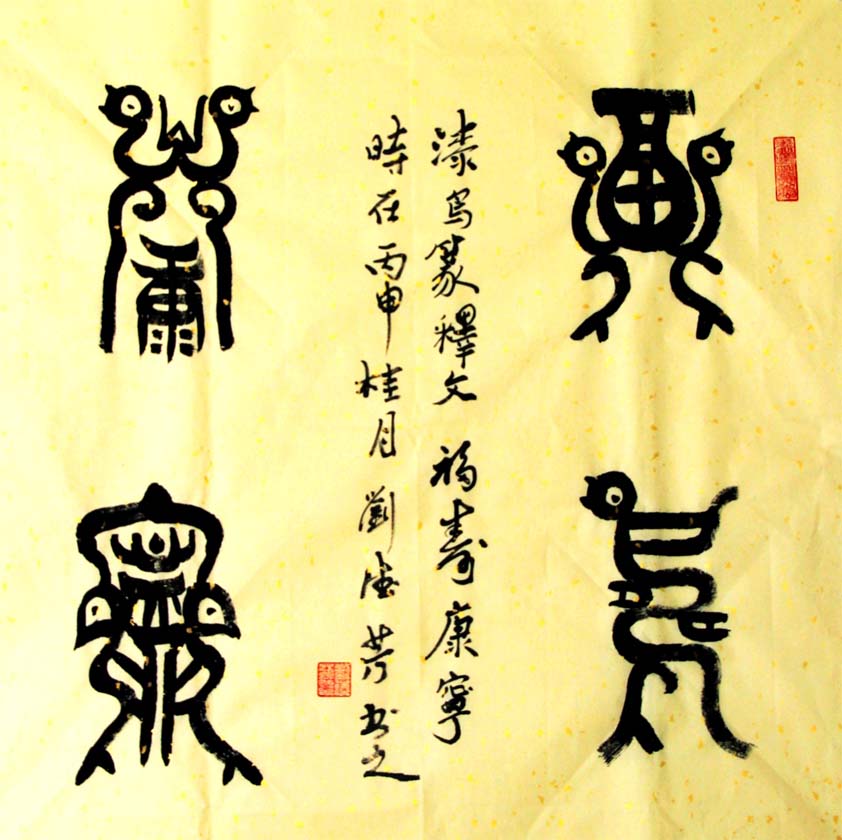 福壽
漆鳥篆釋文 福壽康寧
時在丙申桂月劉德芳書之
康寧